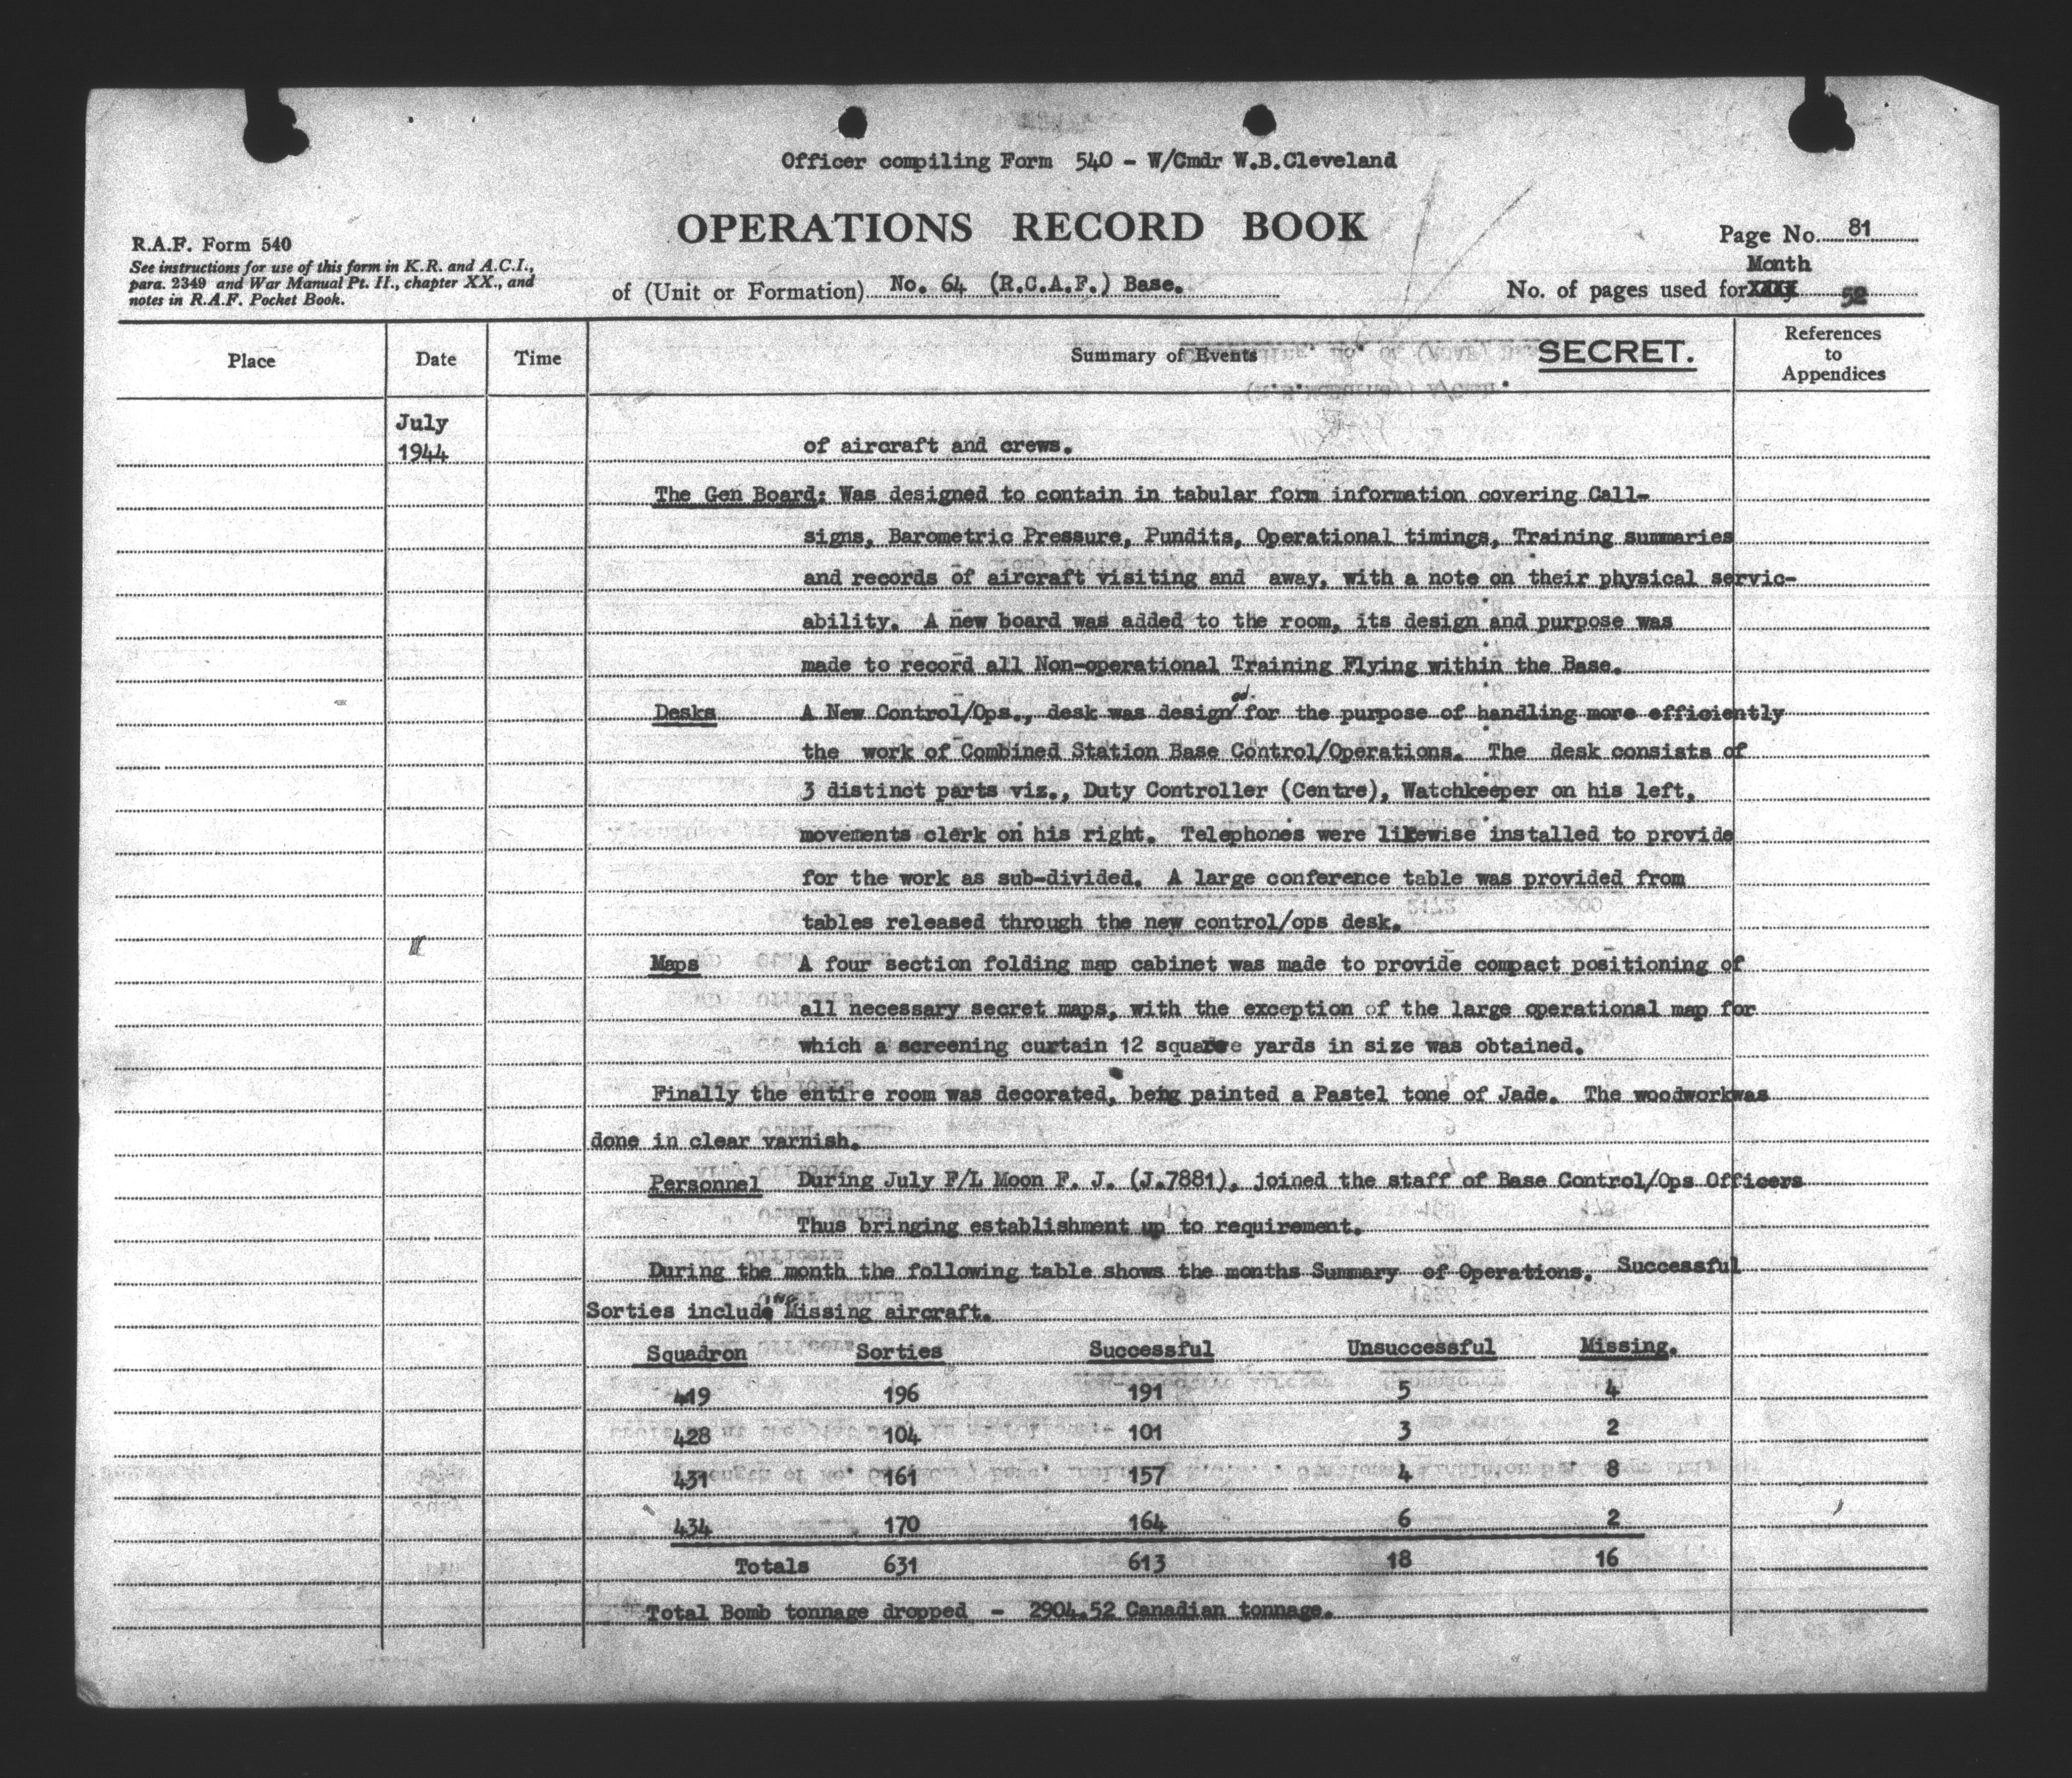 Officer compiling Form 540 - W/Cmdr W.B.Cleveland
OPERATIONS RECORD BOOK
Page No. 81
R.A.F. Form 540
See instructions for use of this form in K.R. and A.C.I.,
para. 2349 and War Manual Pt. II., chapter XX., and
notes in R.A.F. Pocket Book.
Month
of (Unit or Formation) No. 64 (R.C.A.F.) Base.
No. of pages used for XXXX 52
Place Date Time Summary of Events SECRET. References to Appendices
July
1944
of aircraft and crews.
The Gen Board: Was designed to contain in tabular form information covering Call-
signs, Barometric Pressure, Pundits, Operational timings, Training summaries
and records of aircraft visiting and away, with a note on their physical servic-
ability. A new board was added to the room, its design and purpose was
made to record all Non-operational Training Flying within the Base.
Desks A New Control/Ops., desk was designed for the purpose of handling more efficiently
the work of Combined Station Base Control/Operations. The desk consists of
3 distinct parts viz., Duty Controller (Centre), Watchkeeper on his left,
movements clerk on his right. Telephones were likewise installed to provide
for the work as sub-divided. A large conference table was provided from
tables released through the new control/ops desk.
Maps A four section folding map cabinet was made to provide compact positioning of
all necessary secret maps, with the exception of the large operational map for
which a screening curtain 12 square yards in size was obtained.
Finally the entire room was decorated, being painted a Pastel tone of Jade. The woodwork was
done in clear varnish.
Personnel During July F/L Moon F. J. (J.7881), joined the staff of Base Control/Ops Officers
Thus bringing establishment up to requirement.
During the month the following table shows the months Summary of Operations. Successful
Sorties including Missing aircraft.
Squadron Sorties Successful Unsuccessful Missing.
419 196 191 5 4
428 104 101 3 2
431 161 157 4 8
434 170 164 6 2
Totals 631 613 18 16
Total Bomb tonnage dropped - 2904.52 Canadian tonnage.